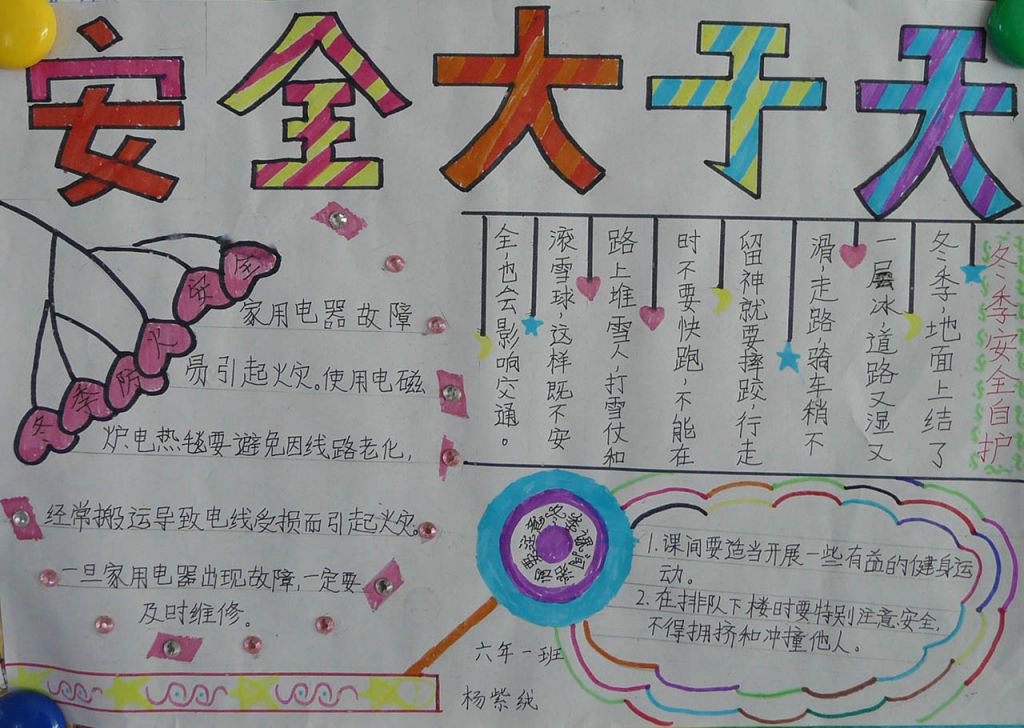 安全大于天
冬季防火安全
家用电器故障
易引起火灾。使用电磁
炉、电热毯要避免因线路老化,
经常搬运导致电线受损而引起火灾。
一旦家用电器出现故障,一定要
及时维修。
冬季安全自护
冬季,地面上结了
一层冰,道路又湿又
滑,走路,骑车稍不
留神就要摔跤,行走
时不要快跑,不能在
路上堆雪人,打雪仗和
滚雪球,这样既不安
全,也会影响交通。
1.课间要适当开展一些有益的健身运
动。
2.在排队下楼时要特别注意安全,
不得拥挤和冲撞他人。
六年一班
杨紫绒